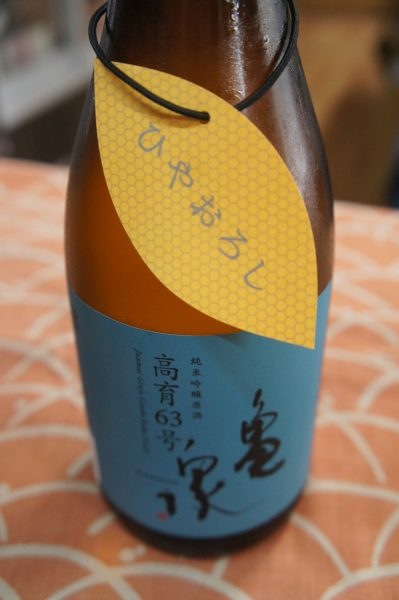 ひやおろし
亀泉
純米吟醸原酒
高育63号